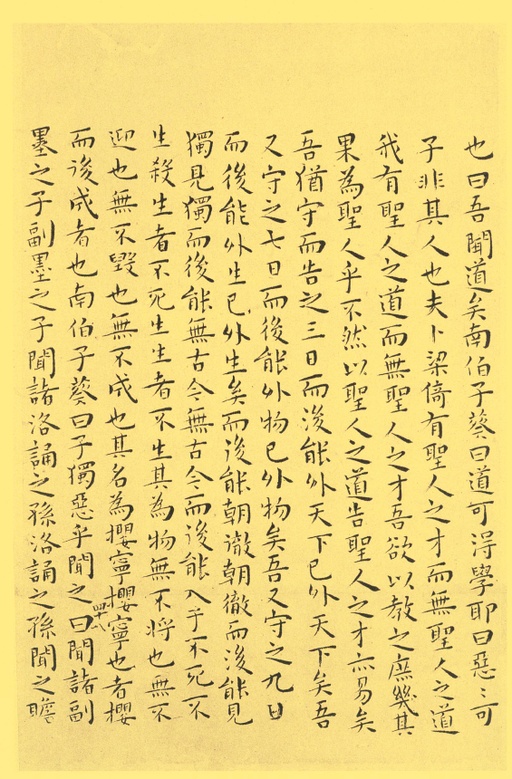 也曰吾聞道矣南伯子葵曰道可得學耶曰惡〻可
子非其人也夫卜梁倚有聖人之才而無聖人之道
我有聖人之道而無聖人之才吾欲以教之庶幾其
果為聖人乎不然以聖人之道告聖人之才亦易矣
吾猶守而告之三日而後能外天下已外天下矣吾
又守之七日而後能外物已外物矣吾又守之九日
而後能外生已外生矣而後能朝徹朝徹而後能見
獨見獨而後能無古今無古今而後能入乎不死不
生殺生者不死生生者不生其為物無不將也無不
迎也無不毀也無不成也其名為攖寧攖寧也者攖
而後成者也南伯子葵曰子獨惡乎聞之曰聞諸副
墨之子副墨之子聞諸洛誦之孫洛誦之孫聞之瞻